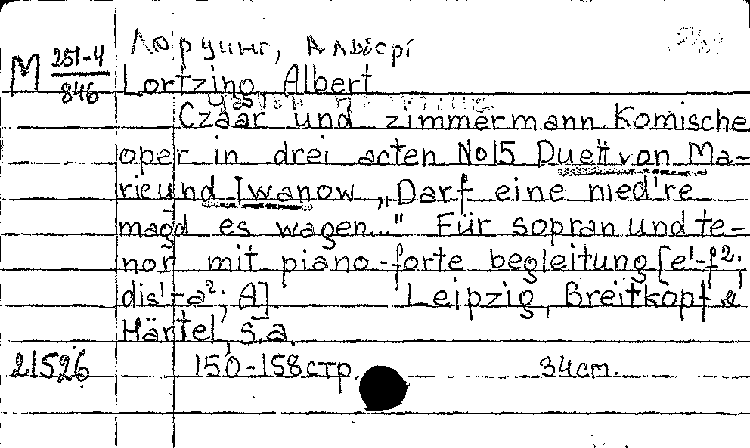 Лорцинг, Альберт
М 251-4/846
Lortzing, Albert
Czaar und zimmermann Komische
oper in drei acten No15 Duett von Ma-
rie und Iwanow „Darf eine nied're
magd es wagen..." Für sopran und te-
nor mit piano-forte begleitung [e¹-f²;
dis¹-a²; A] Leipzig, Breitkopf e¹
Härtel, s.a.
21526 150-158стр. 34cm.